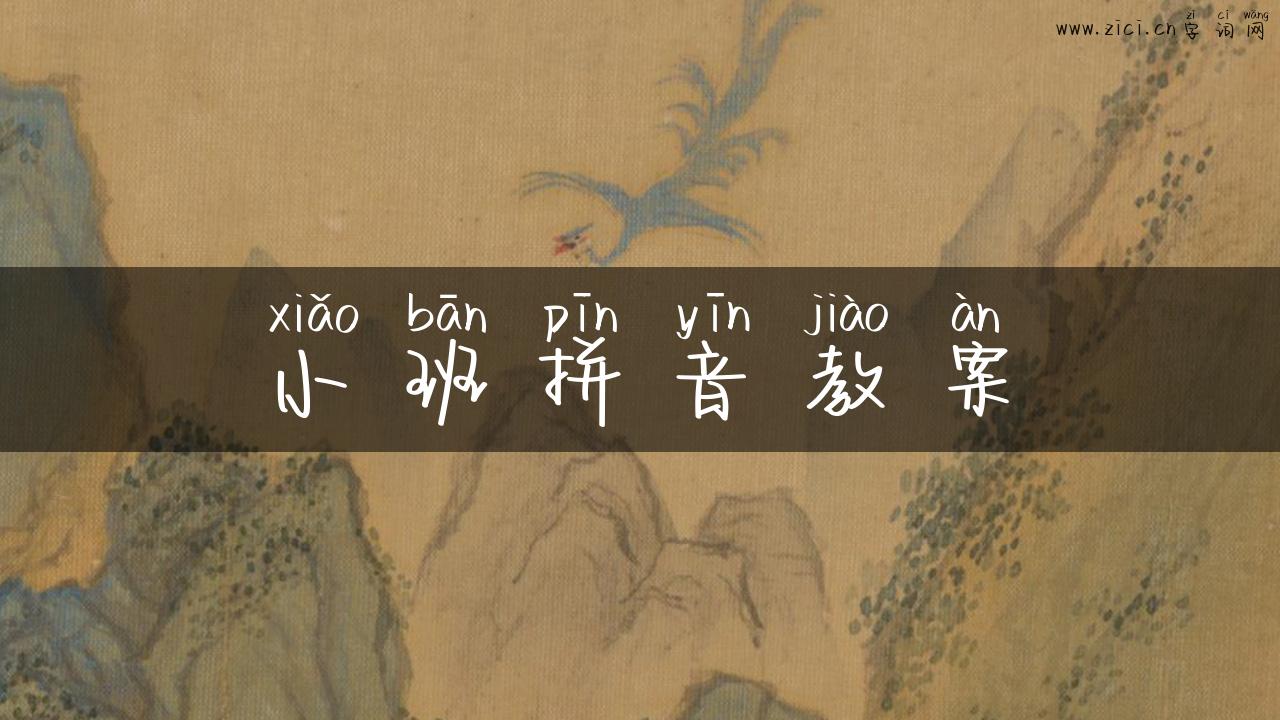 zì cí wǎng
www.zici.cn字词网
xiǎo bān pīn yīn jiào àn
小班拼音教案